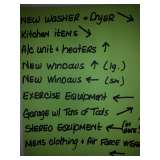 New Washer + Dryer ↘
Kitchen items ↘
A/C unit + heaters ↑
New Windows ↑ (lg.)
New Windows ← (sm.)
Exercise Equipment ←
Garage w/ Tons of Tools ↓
Stereo Equipment ←
Mens clothing + Air Force